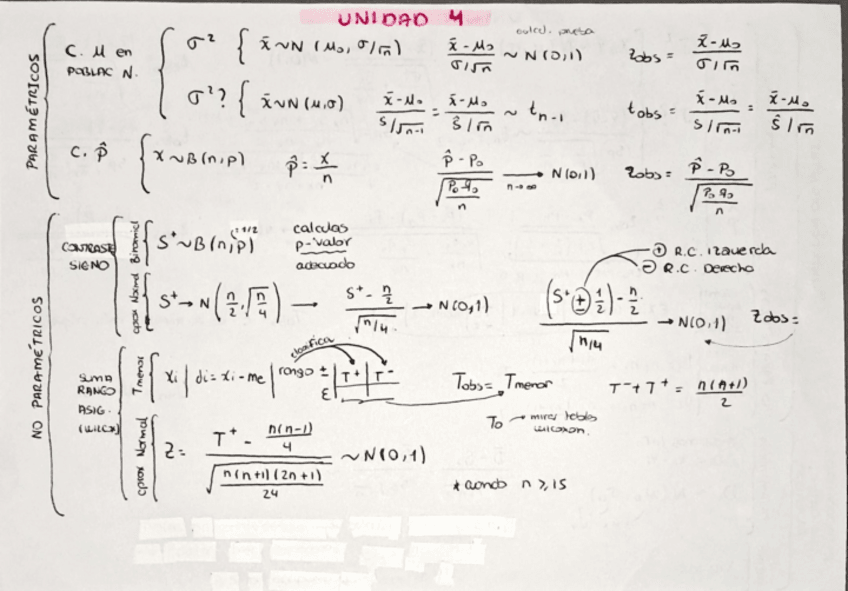 UNIDAD 4
PARAMÉTRICOS
C. μ en POBLAC N.
σ² { x̄ ~ N (μ₀, σ/√n)   (x̄ - μ₀)/(σ/√n) ~ N(0,1)   Zobs = (x̄ - μ₀)/(σ/√n)
estad. prueba
σ²? { x̄ ~ N (μ, σ)   (x̄ - μ₀)/(S/√n-1) = (x̄ - μ₀)/(Ŝ/√n) ~ t n-1   tobs = (x̄ - μ₀)/(S/√n-1) = (x̄ - μ₀)/(Ŝ/√n)
C. p̂ { x ~ B(n,p)   p̂ = x/n   (p̂ - p₀)/√(p₀q₀/n) → n→∞ N(0,1)   Zobs = (p̂ - p₀)/√(p₀q₀/n)
NO PARAMÉTRICOS
CONTRASTE SIGNO
Binomial
S⁺ ~ B(n,p) 1/2   calculas p-valor adecuado
aprox Normal
S⁺ → N(n/2, √(n/4)) → (S⁺ - n/2)/√(n/4) → N(0,1)   ((S⁺ ± 1/2) - n/2)/√(n/4) → N(0,1)   Zobs =
⊕ R.C. Izquierda
⊖ R.C. Derecha
SUMA RANGO ASIG. (WILCX)
Tmenor
xi | di = xi - me | rango ± | T⁺ | T⁻
clasifica
Σ
Tobs = Tmenor   T⁻ + T⁺ = n(n+1)/2
To → mirar tablas wilcoxon.
aprox Normal
Z = (T⁺ - n(n-1)/4)/√(n(n+1)(2n+1)/24) ~ N(0,1)
* cuando n ≥ 15